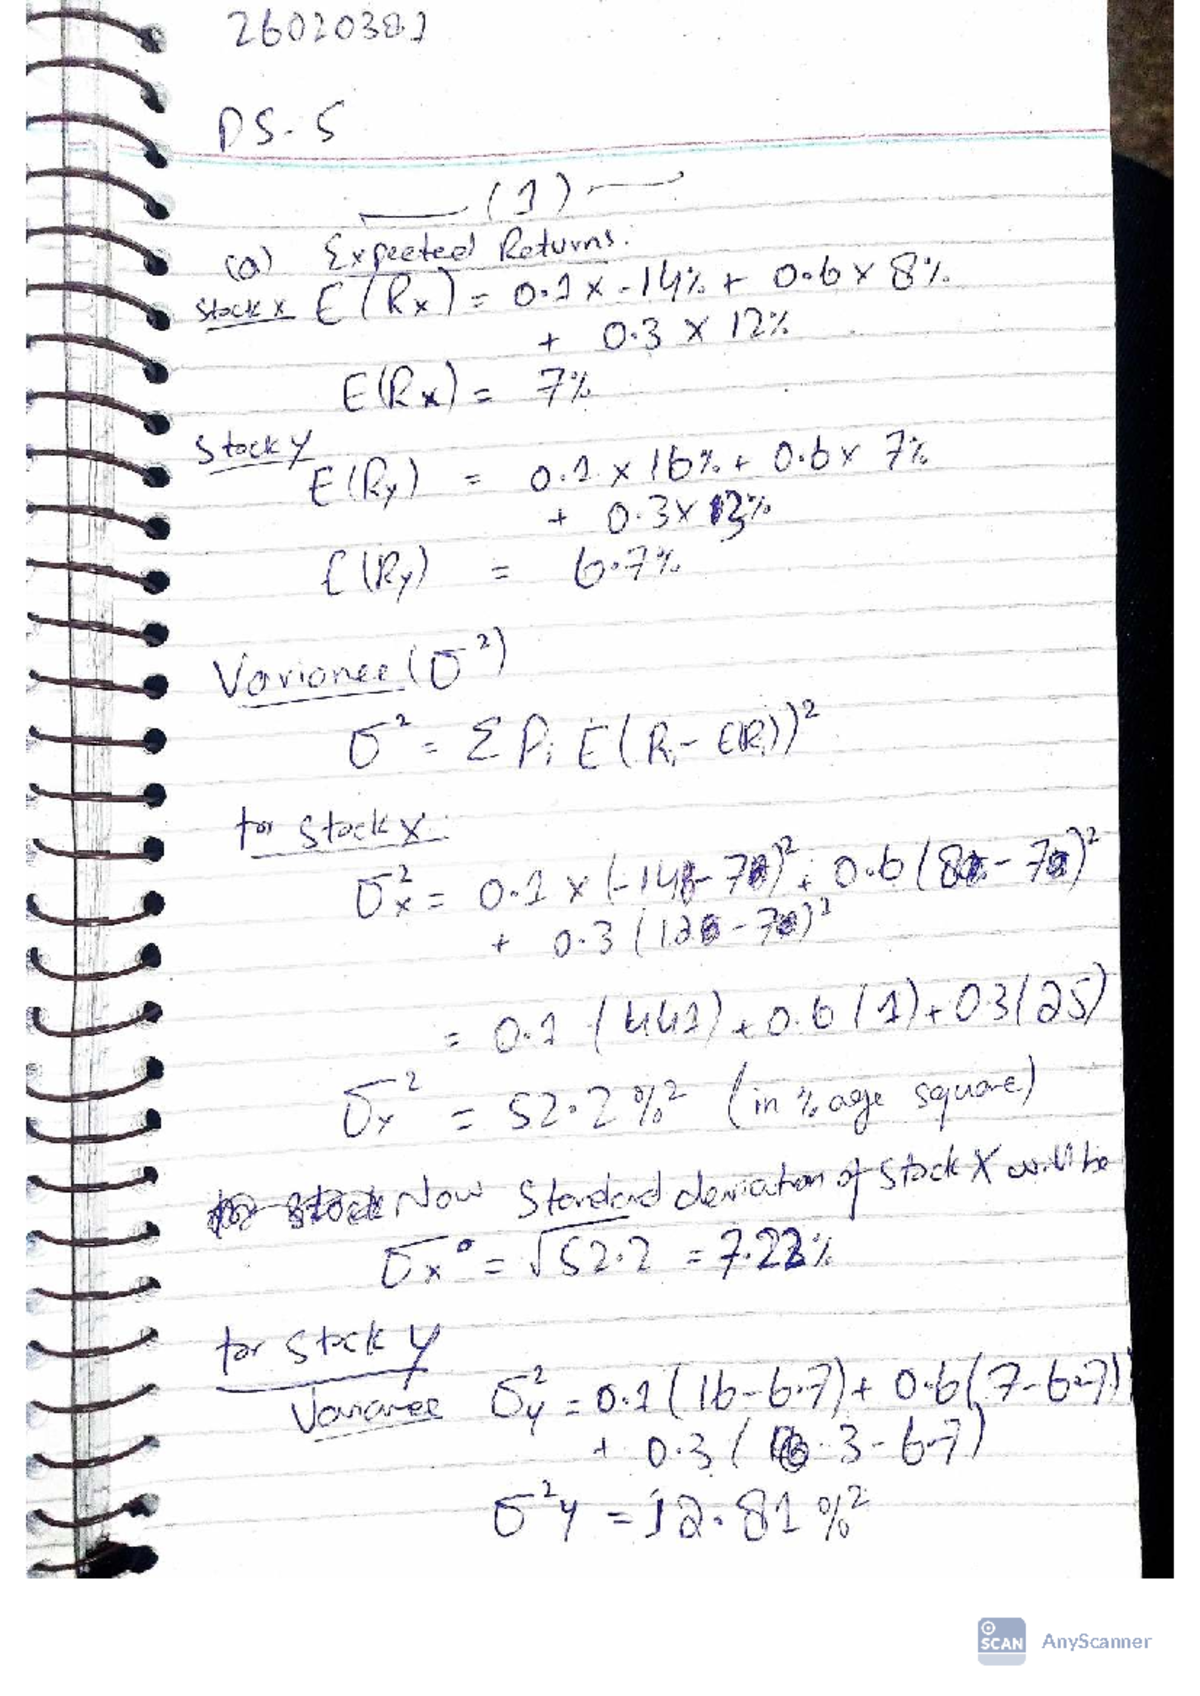 26020381
PS-5
(1)
(a) Expected Returns:
Stock x E(Rx) = 0.1 x -14% + 0.6 x 8%
+ 0.3 x 12%
E(Rx) = 7%
Stock Y
E(Ry) = 0.1 x 16% + 0.6 x 7%
+ 0.3 x 3%
E(Ry) = 6.7%
Variance (σ²)
σ² = Σ Pi E(Ri - E(Ri))²
for stock x:
σx² = 0.1 x (-14 - 7)² + 0.6 (8 - 7)²
+ 0.3 (12 - 7)²
= 0.1 (441) + 0.6 (1) + 0.3 (25)
σx² = 52.2 %² (in %age square)
Now Standard deviation of stock X will be
σx = √52.2 = 7.22%
for stock y
Variance σy² = 0.1 (16 - 6.7) + 0.6 (7 - 6.7)
+ 0.3 ( 3 - 6.7)
σ²y = 12.81 %²
SCAN AnyScanner